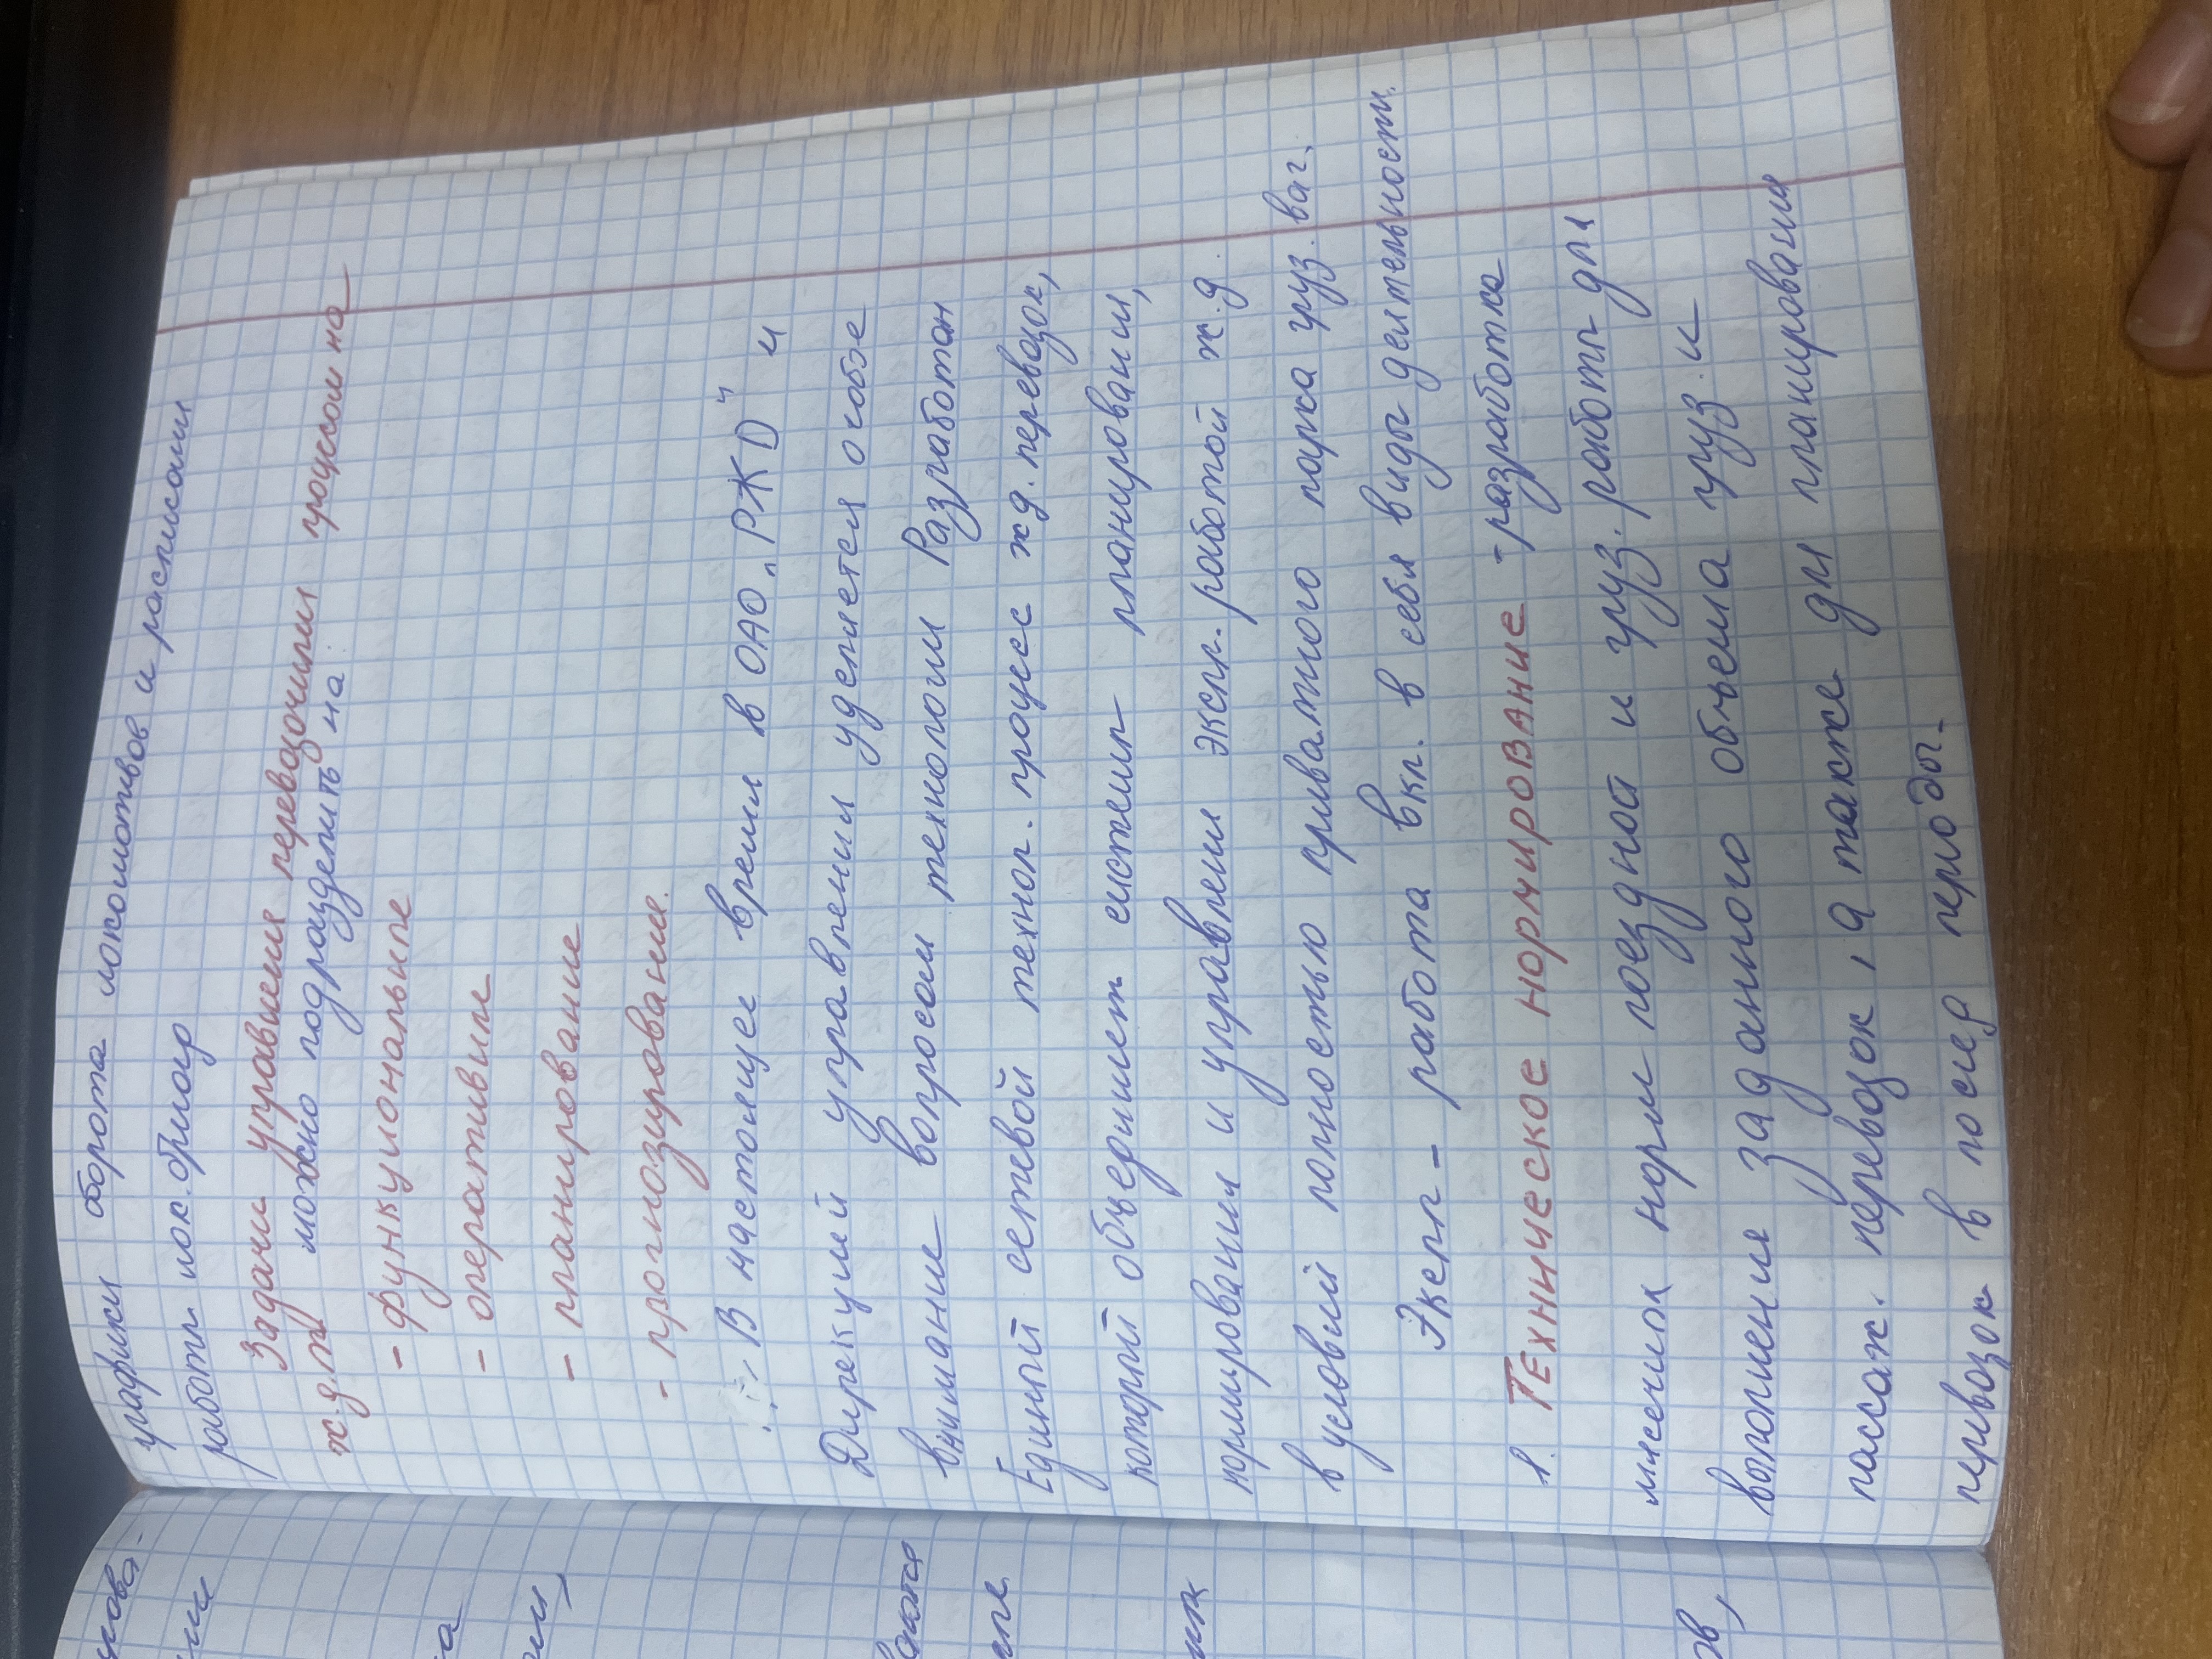 графики оборота локомотивов и расписаии
работы лок. бригад
Задачи управлеия перевозочным процессом на
ж.д.т можно подразделить на
- функциональные
- оперативные
- планирование
- прогнозирование.
В настоящее время в ОАО „РЖD" и
Дирекций управления уделяется особое
внимание вопросам технологии Разработан
Единый сетевой технол. процесс жд. перевозок,
который объединяет системы планирования,
нормирования и управления экспл. работой ж.д.
в условий полностью приватного парка груз. ваг.
Экспл - работа вкл. в себя виды деятельности.
1. Техническое нормирование - разработка
месячных норм поездной и груз. работы для
выполнения заданного объема груз. и
пассаж. перевозок, а также для планирования
первозок в послед периоды.